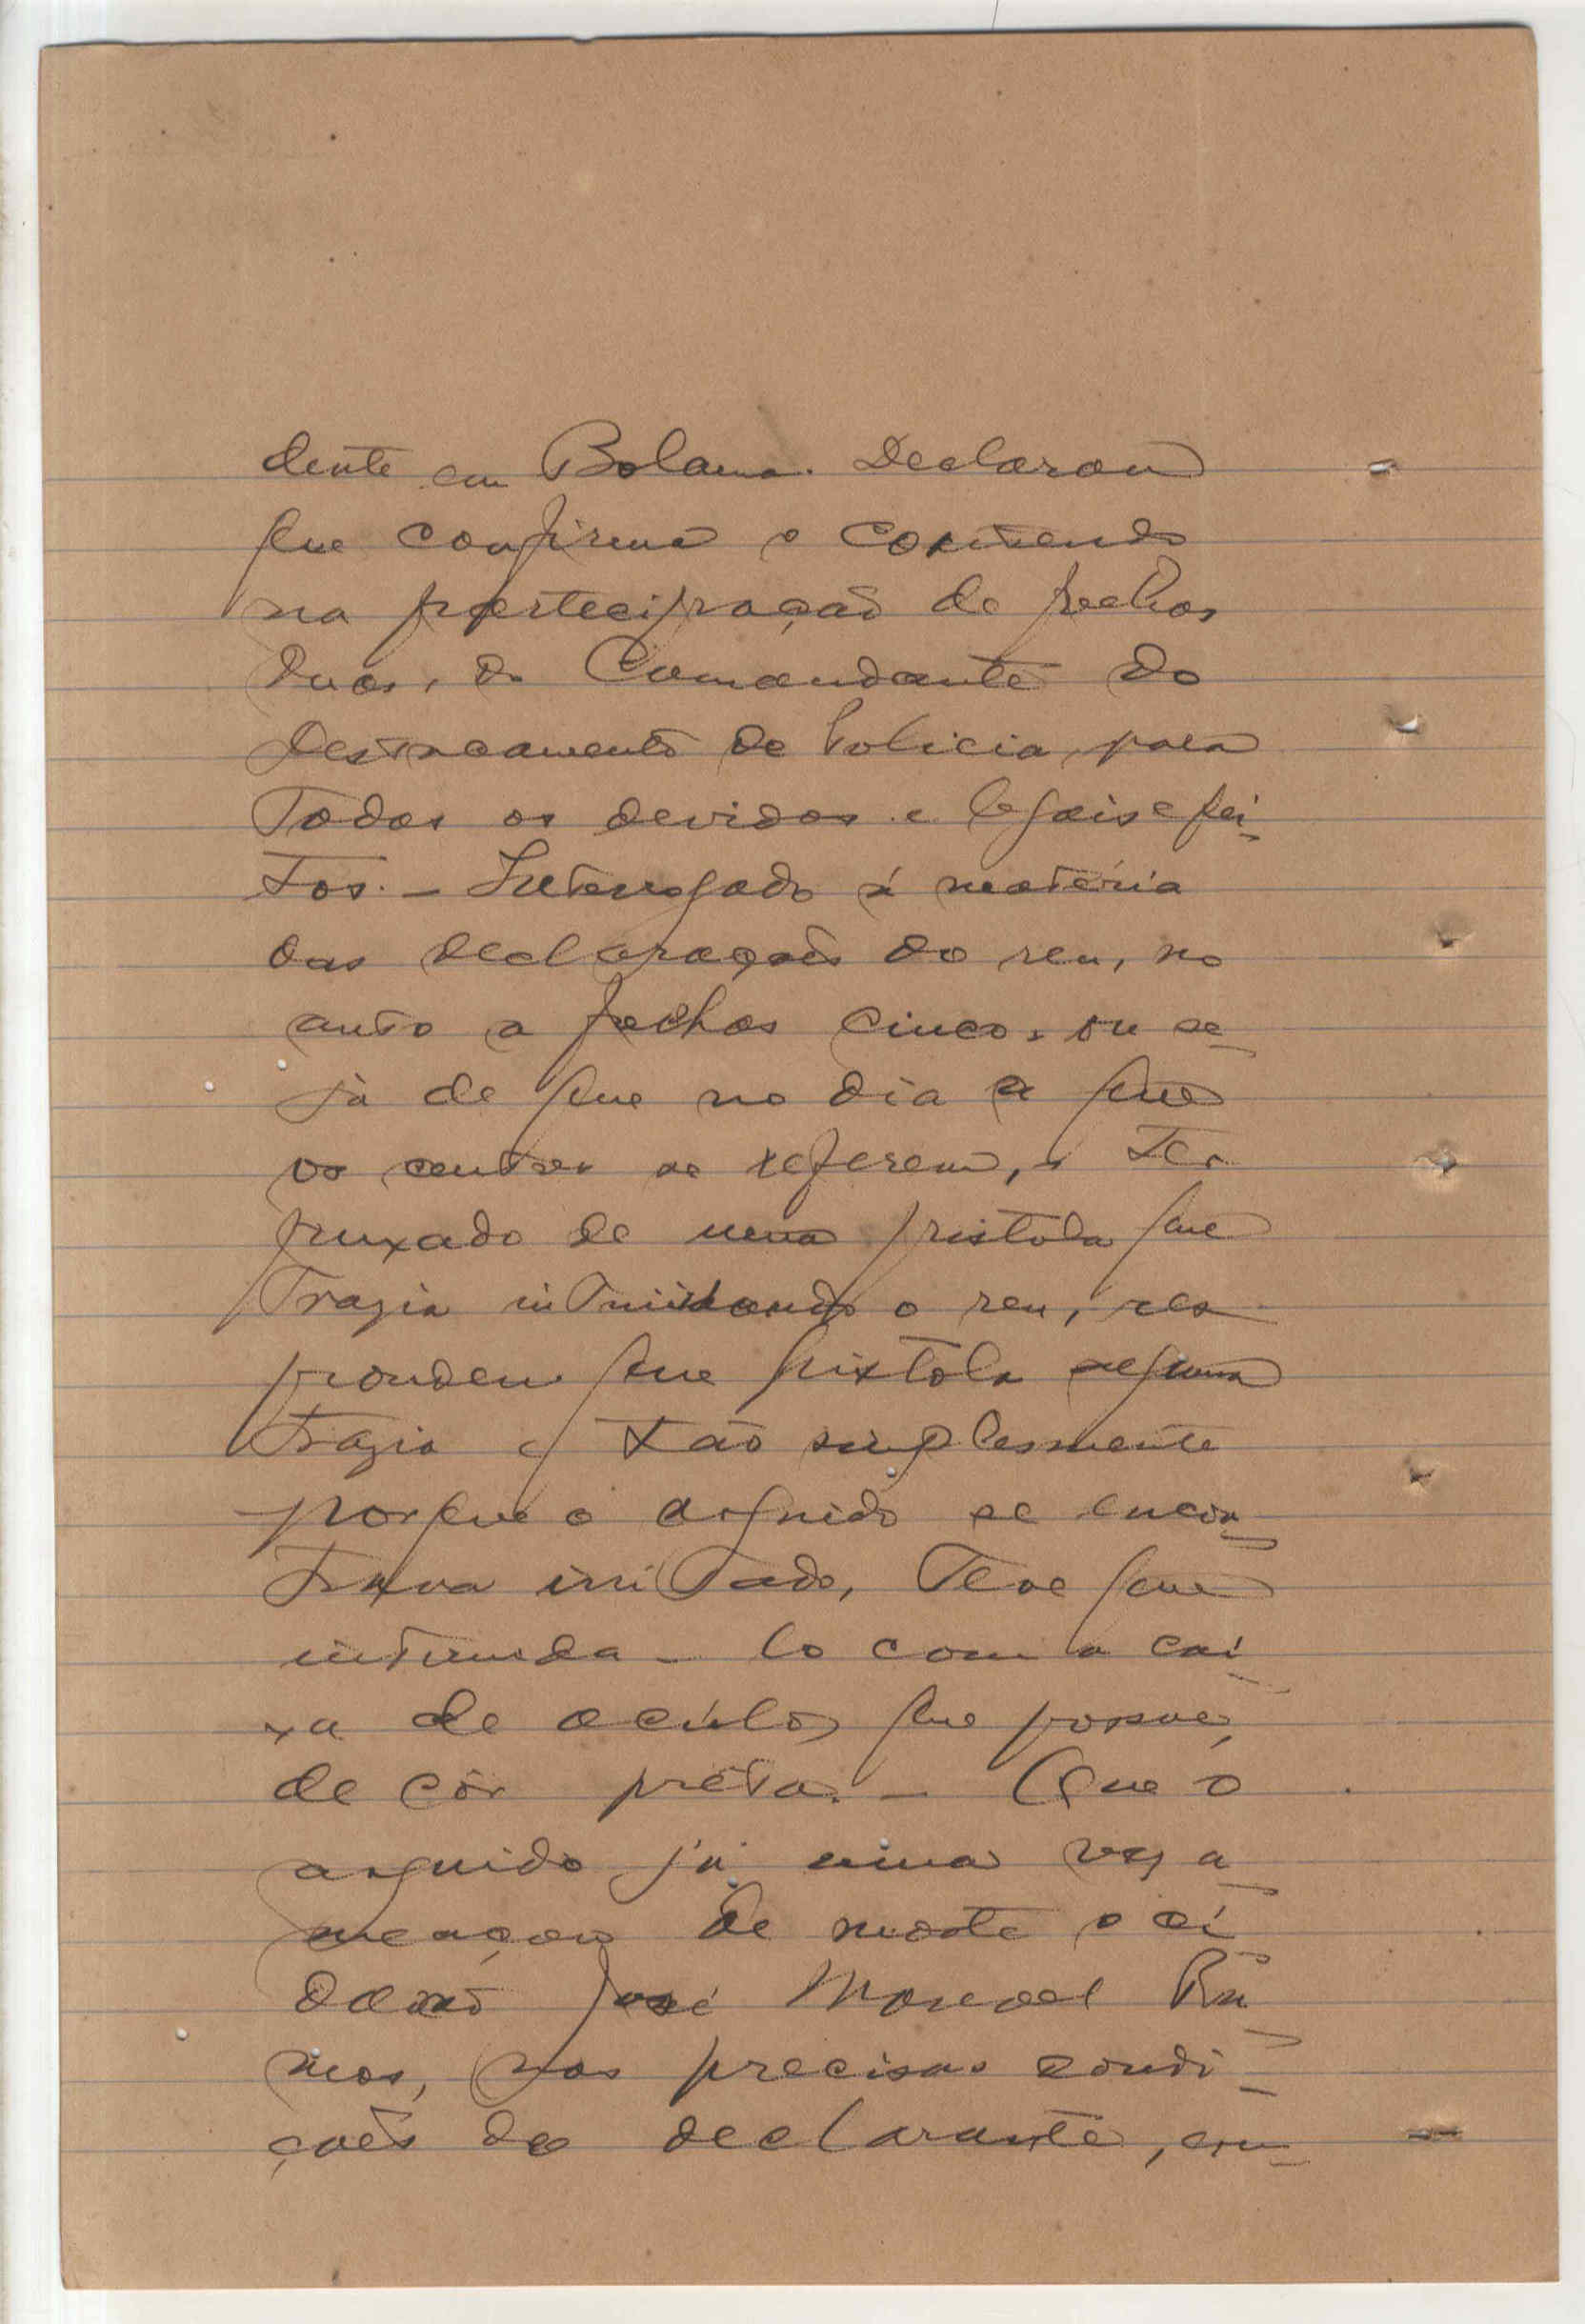 dente em Bolama. Declarou
que confirma o conteudo
na partecipação de folhas
duas, do Comandante do
Destacamento de Policia, para
todos os devidos e legais efei-
tos. – Interrogado á matéria
das declarações do reu, no
auto a folhas cinco, ou se-
ja de que no dia a que
os autos se referem, ter
puxado de uma pistola que
trazia intimidando o reu, res-
pondeu que pistola alguma
trazia e tão simplesmente
porque o arguido se encon-
trava irritado, teve que
intimida-lo com a cai-
xa de oculos que possue,
de côr preta. – Que o
arguido já uma vez a-
meaçou de morte o ci-
dadão José Manoel Ra-
mos, nas precisas condi-
ções do declarante, em-